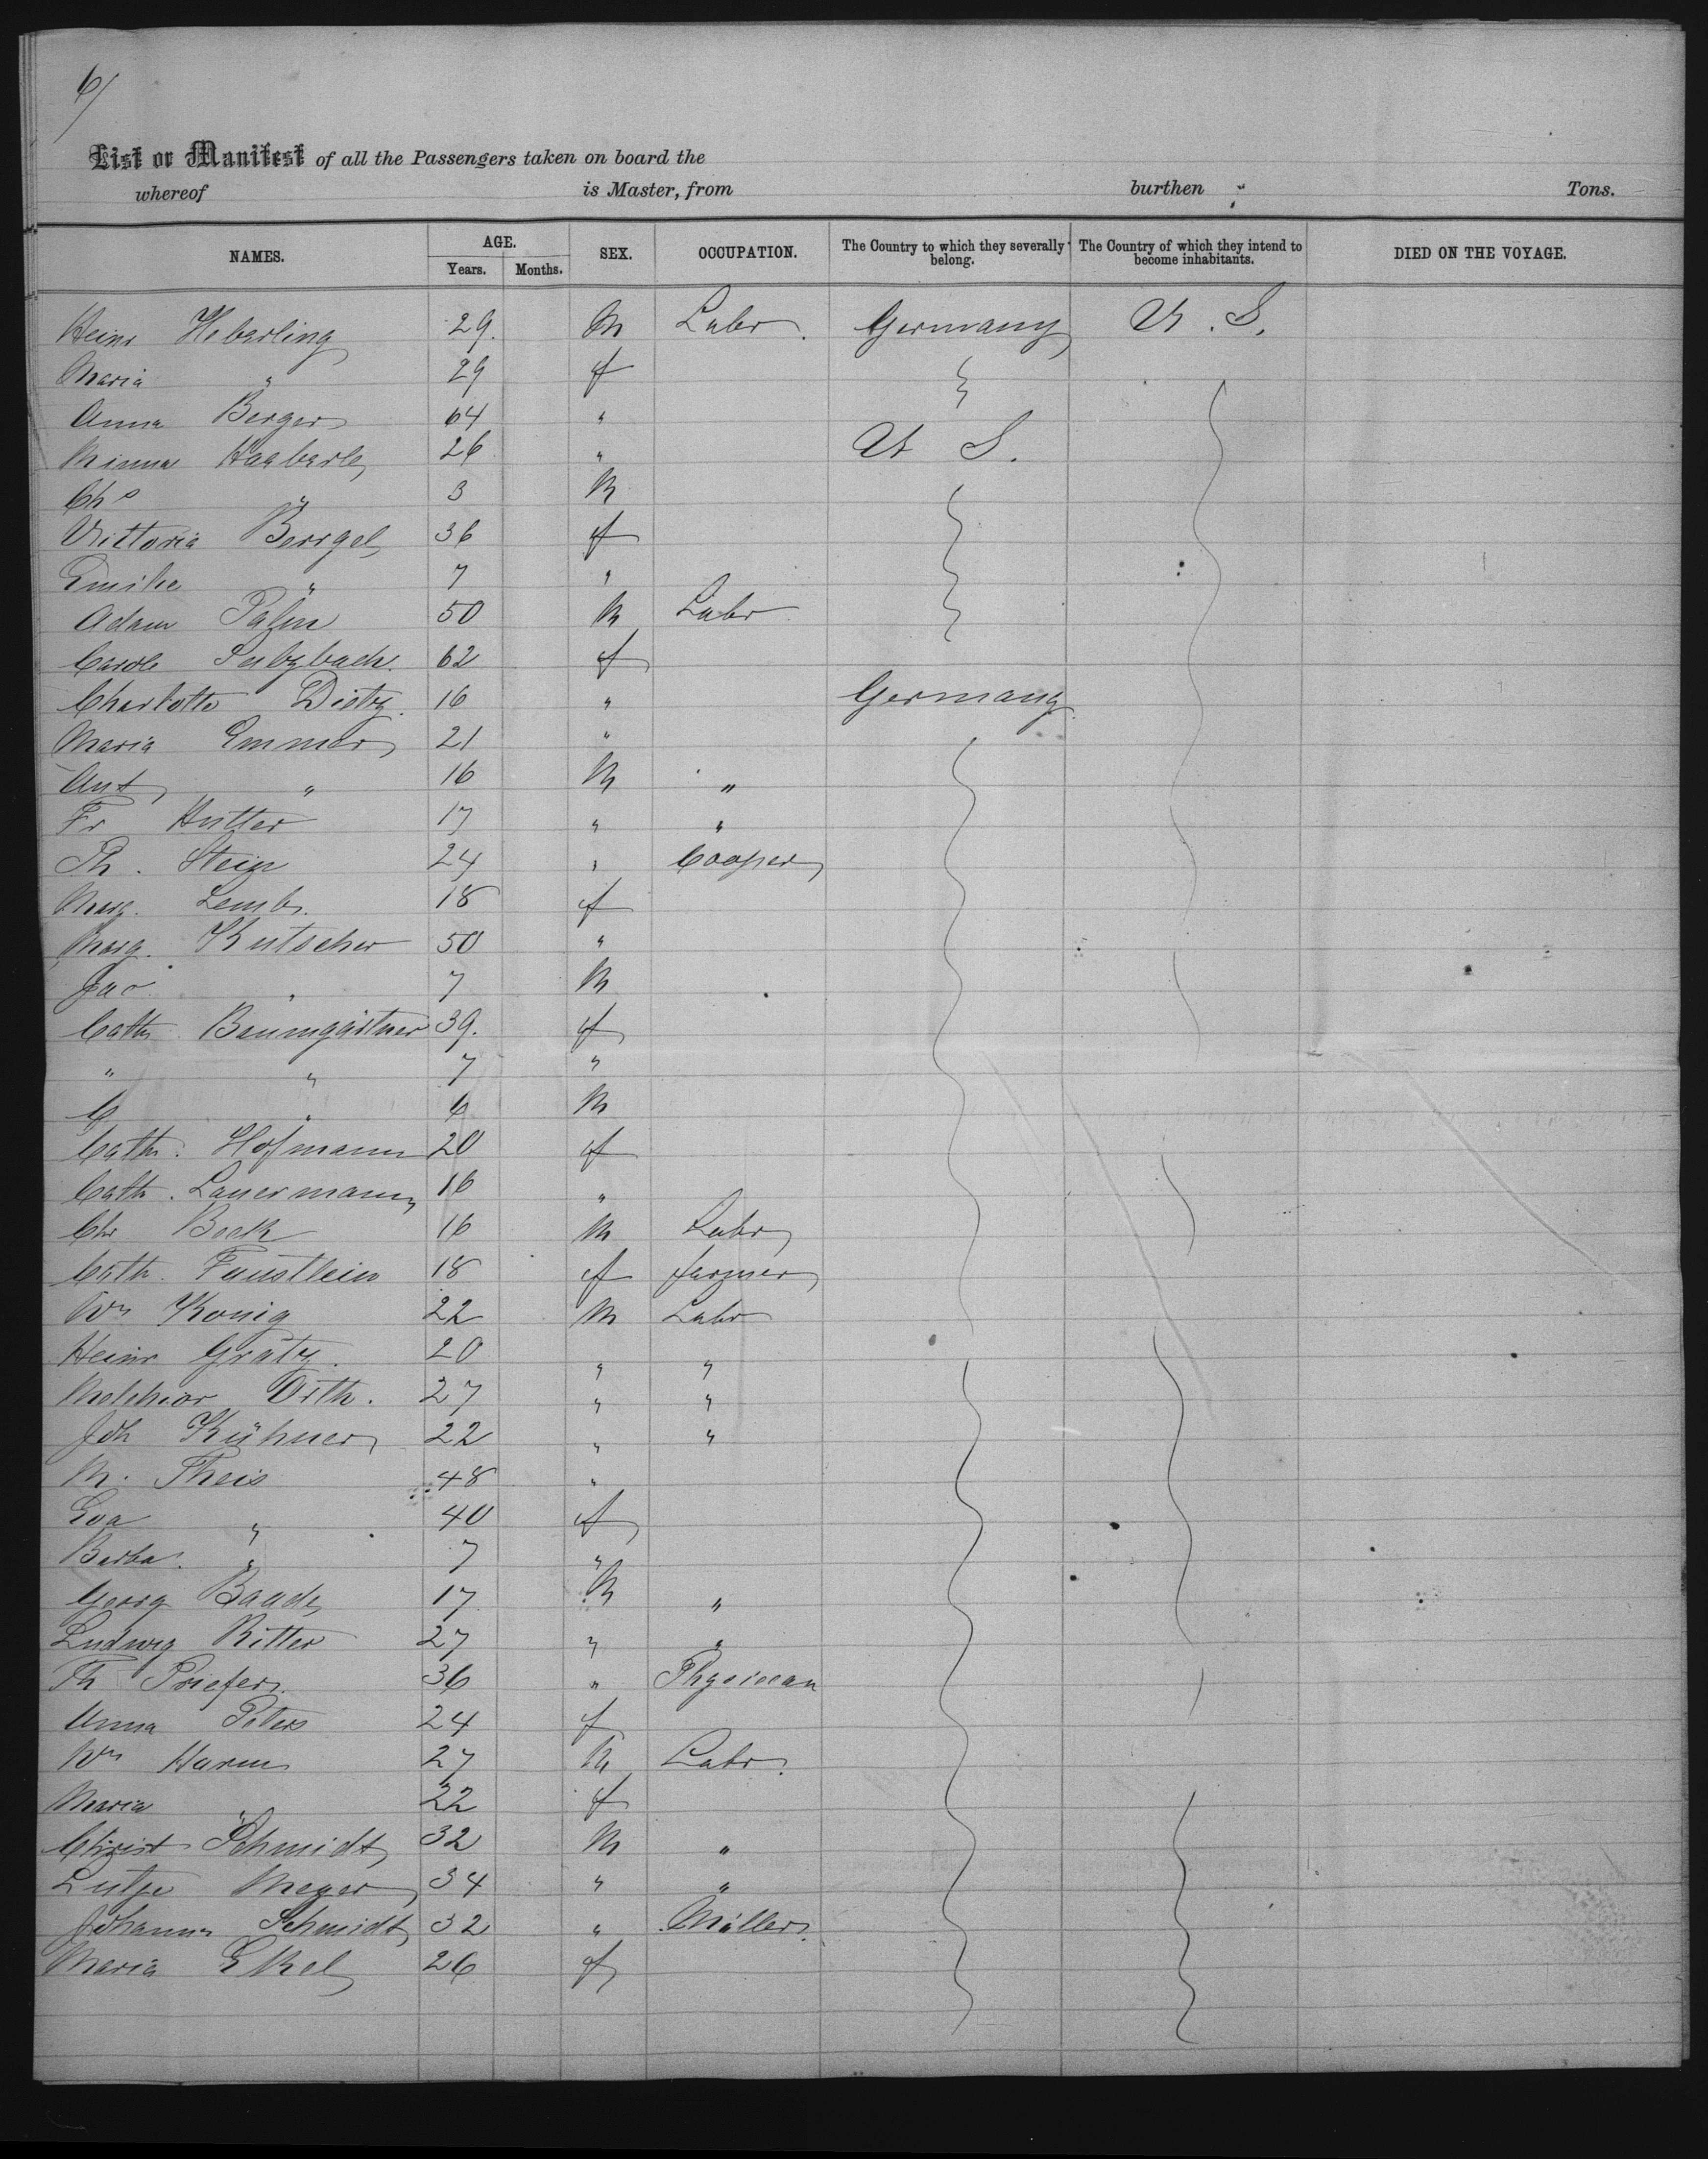 6/
List or Manifest of all the Passengers taken on board the
whereof is Master, from burthen Tons.
NAMES. AGE. Years. Months. SEX. OCCUPATION. The Country to which they severally belong. The Country of which they intend to become inhabitants. DIED ON THE VOYAGE.
Heinr Heberling 29. M Labr. Germany U. S.
Maria " 29 f
Anna Berger 64 "
Minna Haeberle 26 " U S.
Chs " 3 M
Vittoria 36 f
Emilie " 7 "
Adam Palm 50 M Labr
Carole Sulzbach. 62 f
Charlotte Dietz. 16 " Germany
Maria Emmer 21 "
Ant " 16 M "
Fr Hutter 17 " "
Ph. Stein 24 " Cooper
Marg. 18 f
Marg. Kutscher 50 "
Jac " 7 M
Cath Baumgärtner 39. f
" " 7 "
C " 6 M
Cath. Hofmann 20 f
Cath. Lauermann 16 "
Chr 16 M Labr
Cath. Faustlein 18 f farmer
Wm Konig 22 M Labr
Heinr Gratz. 20 " "
Melchior Orth. 27 " "
Joh Kühner 22 " "
M. Theis 48 "
Eva " 40 f
Barba. " 7 "
Georg Baade 17 M "
Ludwig Ritter 27 " "
Th Priefer. 36 " Physician
Anna Peters 24 f
Wm Harm 27 M Labr.
Maria " 22 f
Christ Schmidt 32 M "
Lutje Meyer 34 " "
Johann Schmidt 32 " Müller.
Maria Ekel 26 f